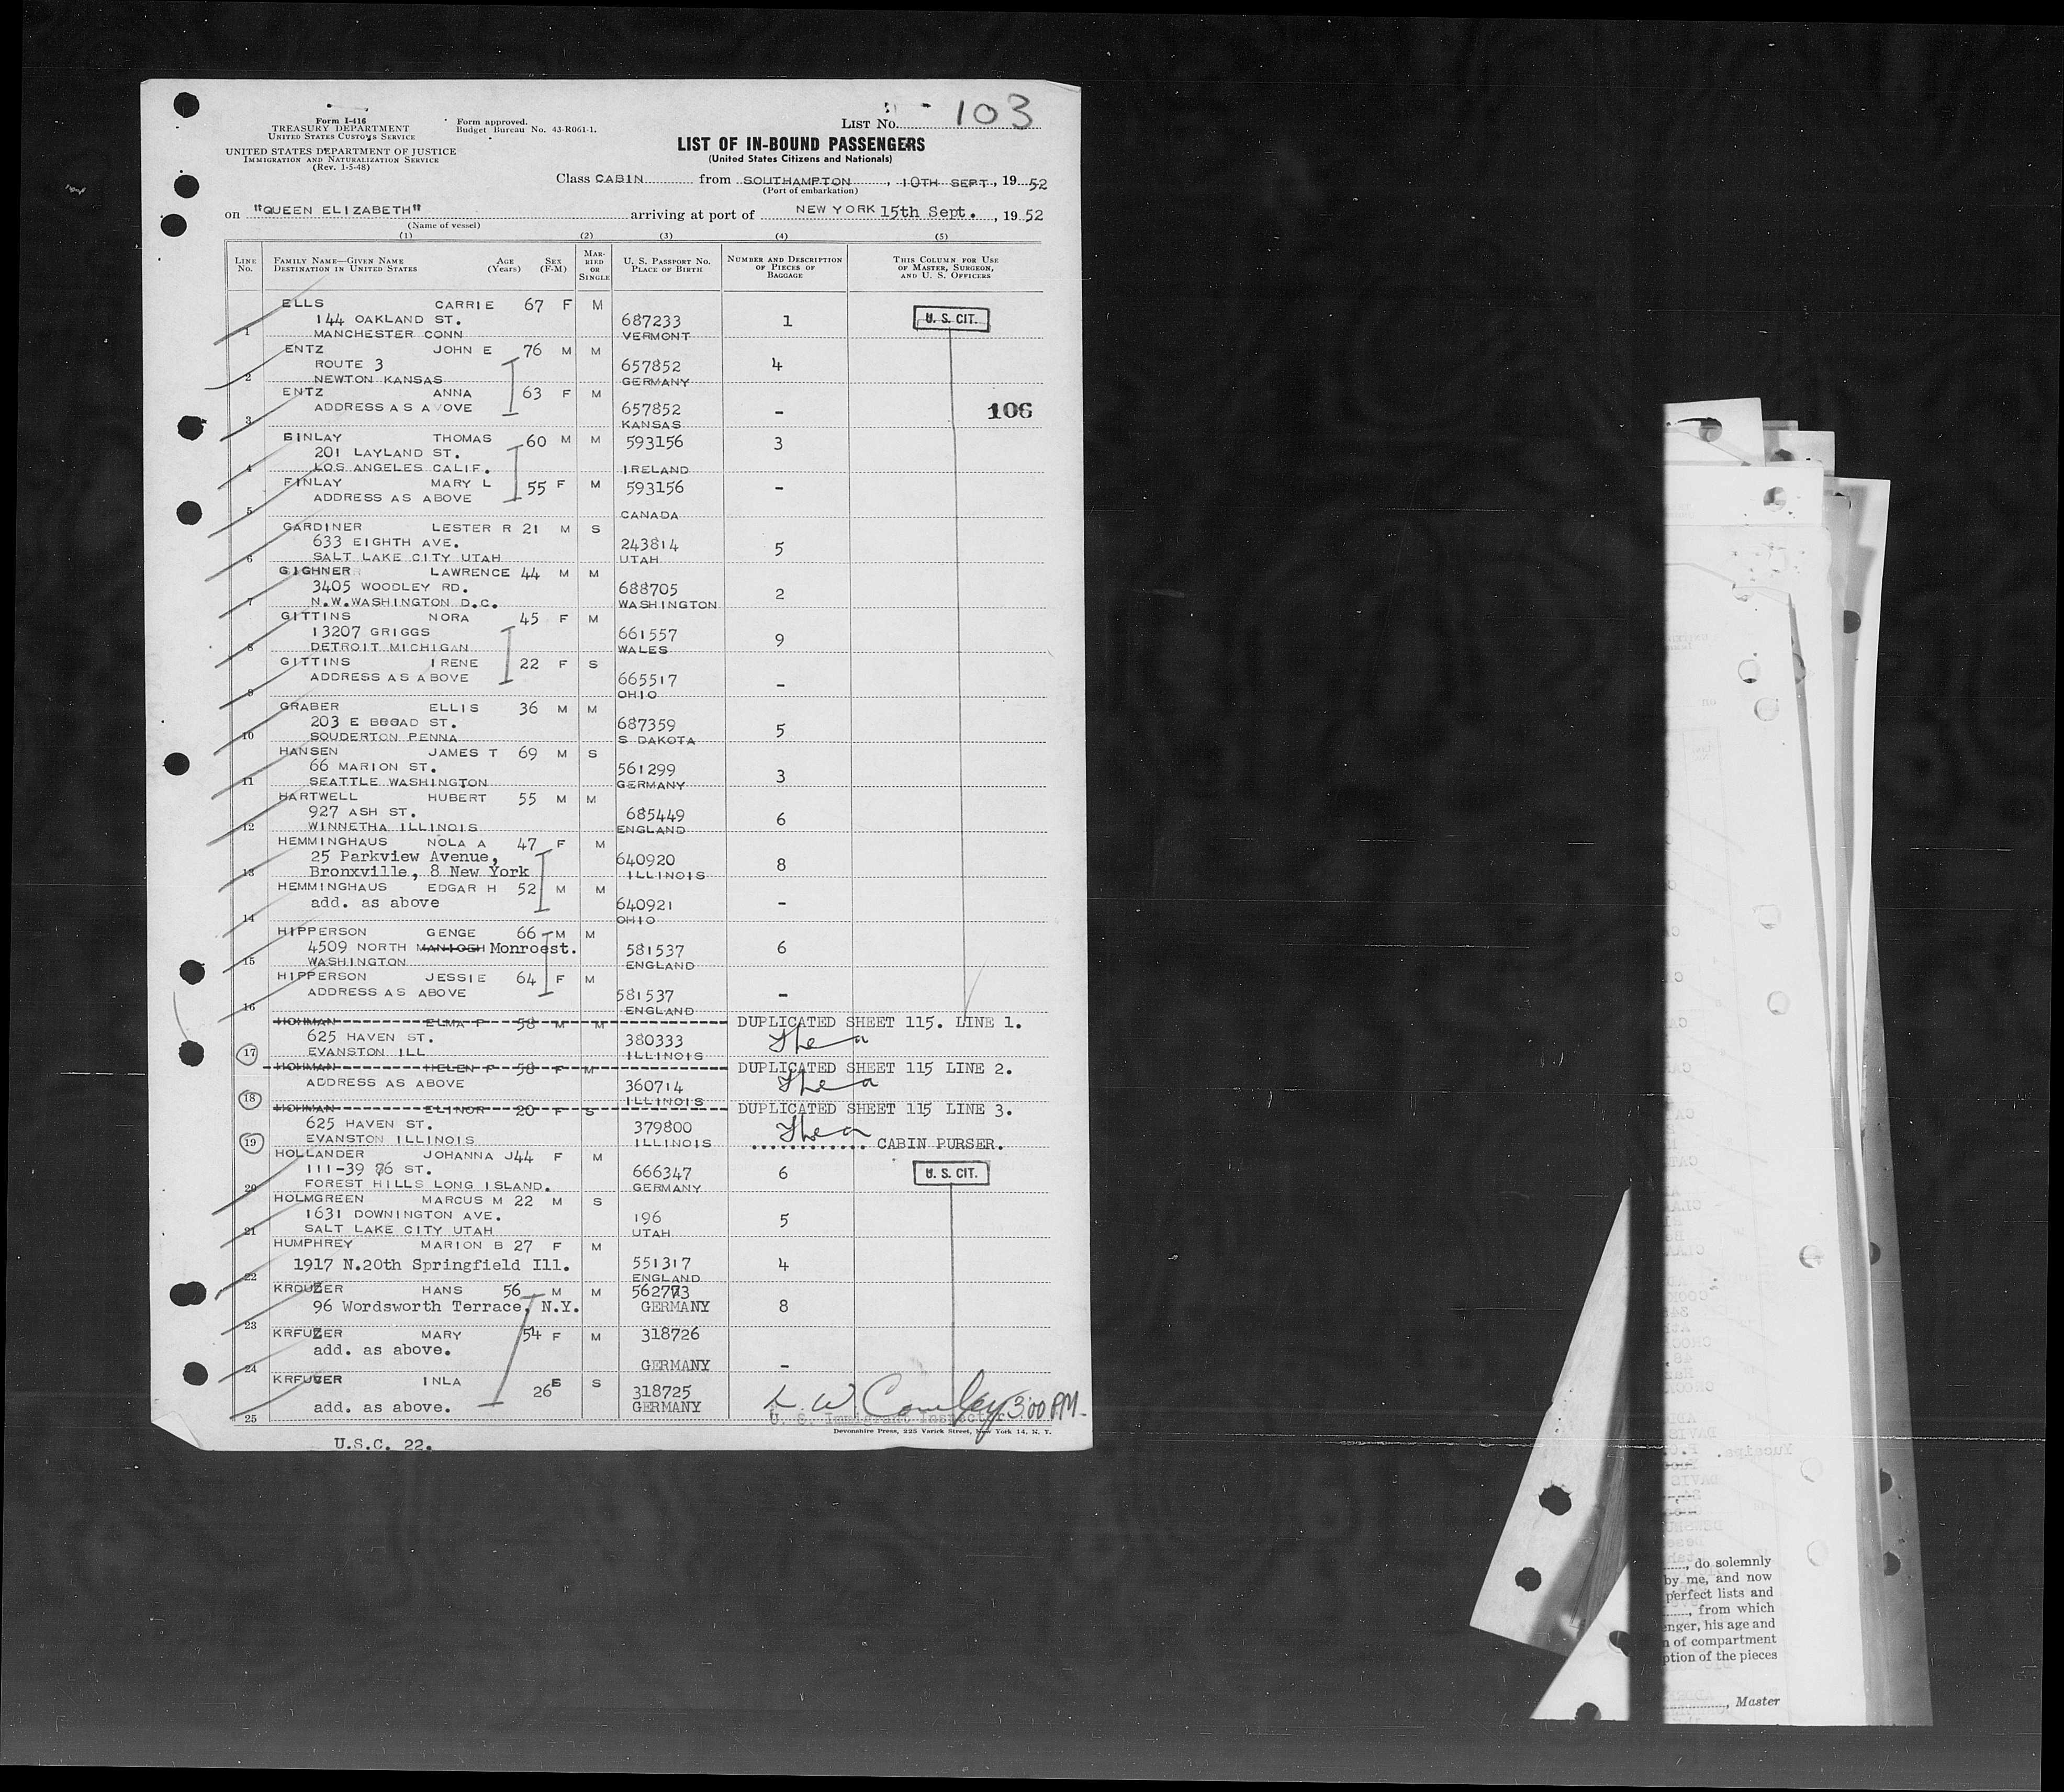 LIST NO. 103
Form I-416
TREASURY DEPARTMENT
UNITED STATES CUSTOMS SERVICE
UNITED STATES DEPARTMENT OF JUSTICE
IMMIGRATION AND NATURALIZATION SERVICE
(Rev. 1-5-48)
Form approved.
Budget Bureau No. 43-R061-1.
LIST OF IN-BOUND PASSENGERS
(United States Citizens and Nationals)
Class CABIN from SOUTHAMPTON, 10TH SEPT, 1952
(Port of embarkation)
on "QUEEN ELIZABETH" arriving at port of NEW YORK 15th Sept., 1952
(Name of vessel)
(1) (2) (3) (4) (5)
LINE NO. FAMILY NAME—GIVEN NAME DESTINATION IN UNITED STATES AGE (Years) SEX (F-M) MARRIED OR SINGLE U. S. PASSPORT NO. PLACE OF BIRTH NUMBER AND DESCRIPTION OF PIECES OF BAGGAGE THIS COLUMN FOR USE OF MASTER, SURGEON, AND U. S. OFFICERS
ELLS CARRIE 67 F M
144 OAKLAND ST. 687233 1 U. S. CIT.
1 MANCHESTER CONN VERMONT
ENTZ JOHN E 76 M M
ROUTE 3 657852 4
2 NEWTON KANSAS GERMANY
ENTZ ANNA 63 F M
ADDRESS AS AVOVE 657852 - 106
3 KANSAS
BINLAY THOMAS 60 M M 593156 3
201 LAYLAND ST.
4 LOS ANGELES CALIF. IRELAND
FINLAY MARY L 55 F M 593156 -
ADDRESS AS ABOVE
5 CANADA
GARDINER LESTER R 21 M S
633 EIGHTH AVE. 243814 5
6 SALT LAKE CITY UTAH UTAH
GIGHNER LAWRENCE 44 M M
3405 WOODLEY RD. 688705 2
7 N.W.WASHINGTON D.C. WASHINGTON
GITTINS NORA 45 F M
13207 GRIGGS 661557 9
8 DETROIT MICHIGAN WALES
GITTINS IRENE 22 F S
ADDRESS AS ABOVE 665517 -
9 OHIO
GRABER ELLIS 36 M M
203 E BROAD ST. 687359 5
10 SOUDERTON PENNA S DAKOTA
HANSEN JAMES T 69 M S
66 MARION ST. 561299 3
11 SEATTLE WASHINGTON GERMANY
HARTWELL HUBERT 55 M M
927 ASH ST. 685449 6
12 WINNETHA ILLINOIS ENGLAND
HEMMINGHAUS NOLA A 47 F M
25 Parkview Avenue, 640920 8
13 Bronxville, 8 New York ILLINOIS
HEMMINGHAUS EDGAR H 52 M M
add. as above 640921 -
14 OHIO
HIPPERSON GENGE 66 M M
4509 NORTH Monroest. 581537 6
15 WASHINGTON ENGLAND
HIPPERSON JESSIE 64 F M
ADDRESS AS ABOVE 581537 -
16 ENGLAND
HOHMAN ELMA P 58 M M DUPLICATED SHEET 115. LINE 1.
625 HAVEN ST. 380333
17 EVANSTON ILL ILLINOIS
HOHMAN HELEN F 58 F M DUPLICATED SHEET 115 LINE 2.
ADDRESS AS ABOVE 360714
18 ILLINOIS
HOHMAN ELINOR 20 F S DUPLICATED SHEET 115 LINE 3.
625 HAVEN ST. 379800
19 EVANSTON ILLINOIS ILLINOIS CABIN PURSER.
HOLLANDER JOHANNA J 44 F M
111-39 76 ST. 666347 6 U. S. CIT.
20 FOREST HILLS LONG ISLAND. GERMANY
HOLMGREEN MARCUS M 22 M S
1631 DOWNINGTON AVE. 196 5
21 SALT LAKE CITY UTAH UTAH
HUMPHREY MARION B 27 F M
1917 N.20th Springfield Ill. 551317 4
22 ENGLAND
KROUZER HANS 56 M M 562773
96 Wordsworth Terrace, N.Y. GERMANY 8
23
KRFUZER MARY 54 F M 318726
add. as above.
24 GERMANY -
KRFUZER INLA 26 S
318725
25 add. as above. GERMANY
3:00 PM.
U. S. Immigrant Inspector.
Devonshire Press, 225 Varick Street, New York 14, N. Y.
U.S.C. 22.
, do solemnly
by me, and now
perfect lists and
, from which
enger, his age and
n of compartment
ption of the pieces
, Master